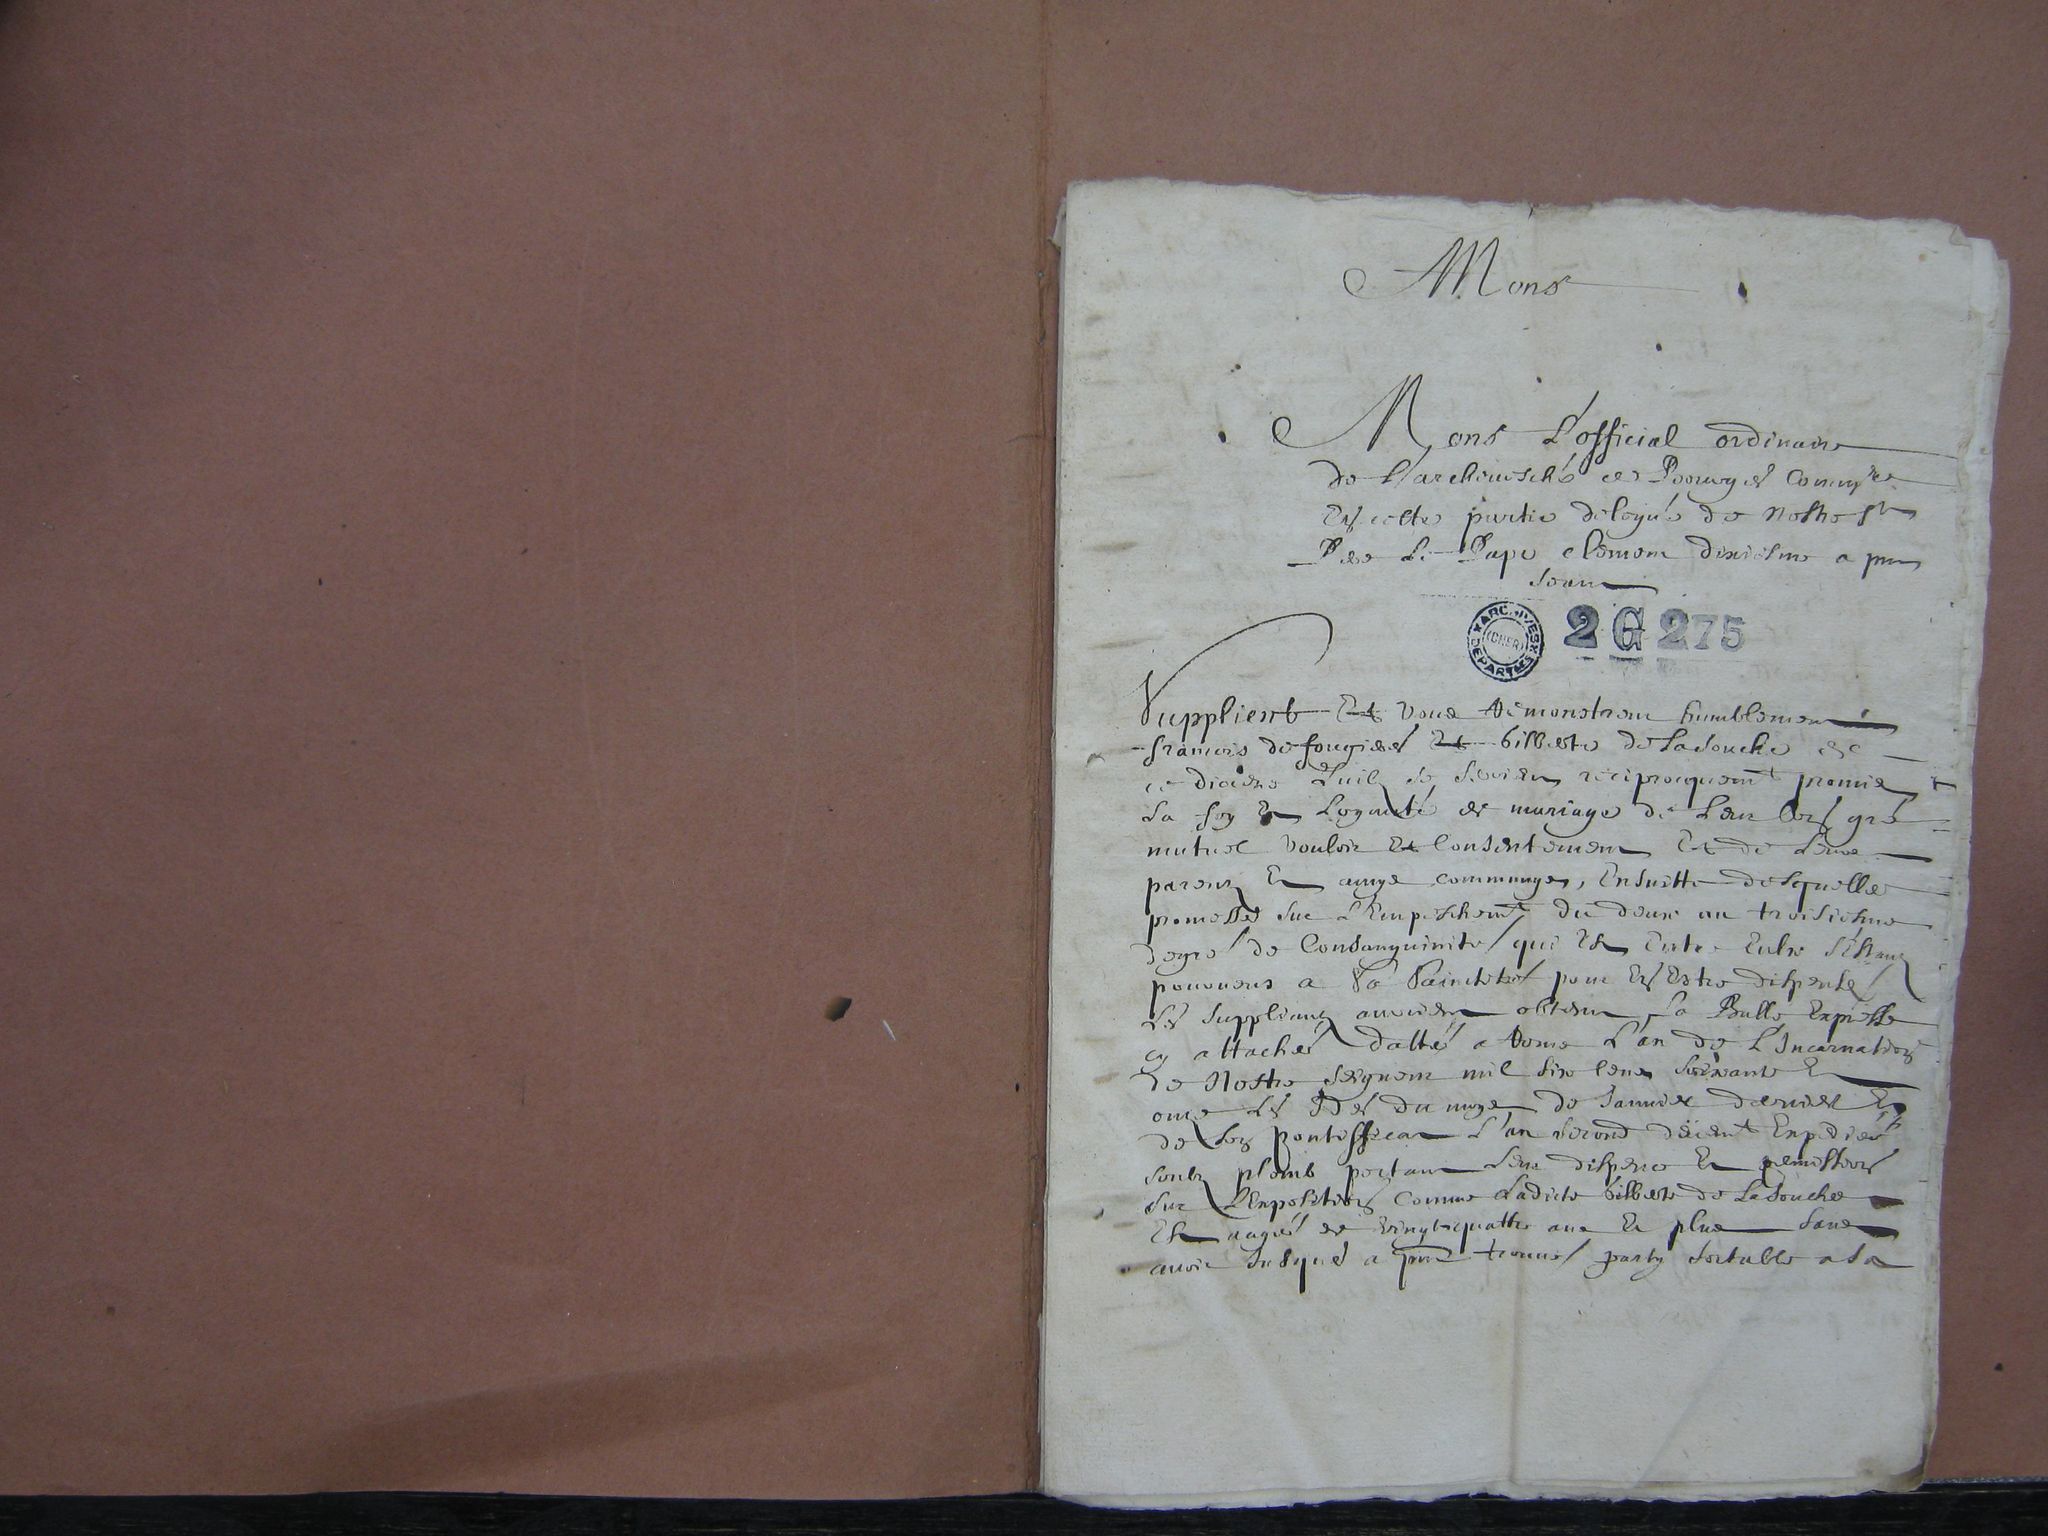 Mons
Mons L'official ordinaire
de L'archeuesché de Bourges Commre
En cette partie delegué de nostre St
Pere Le Pape clement dixiesme a pnt
seant
ARCHIVES DEPARTLES (CHER)
2 G 275
Supplient Et vous Remonstrent humblement
francois de fougieres Et Gilberte de Ladouche de
ce dioceze quilz se seroient reciprocquemt promis
La foy Et Loyauté de mariage de Leur bon gré
mutuel vouloir Et Consentement Et de Leurs
parens Et amys communs, Ensuitte desquelles
promesses sur L'Empeschemt du deux au troisiesme
degré de Consanguinité qui Est Entre Eulx s'estans
pourveus a Sa Saincteté pour En Estre dispensés
Les Supplians auroient obtenu La Bulle Expresse
cy attachée dattée a Rome L'an de L'Incarnation
de Nostre Seigneur mil six cens soixante Et
onze Les Ides du moys de Januier dernier Et
de son pontifficat L'an second deuemt Expediée
soubz plomb portant Leur dispence Et permission
sur L'Exposition comme Ladicte Gilberte de Ladouche
Est aagée de vingt quattre ans Et plus sans
avoir Jusques a pnt trouué party sortable a sa